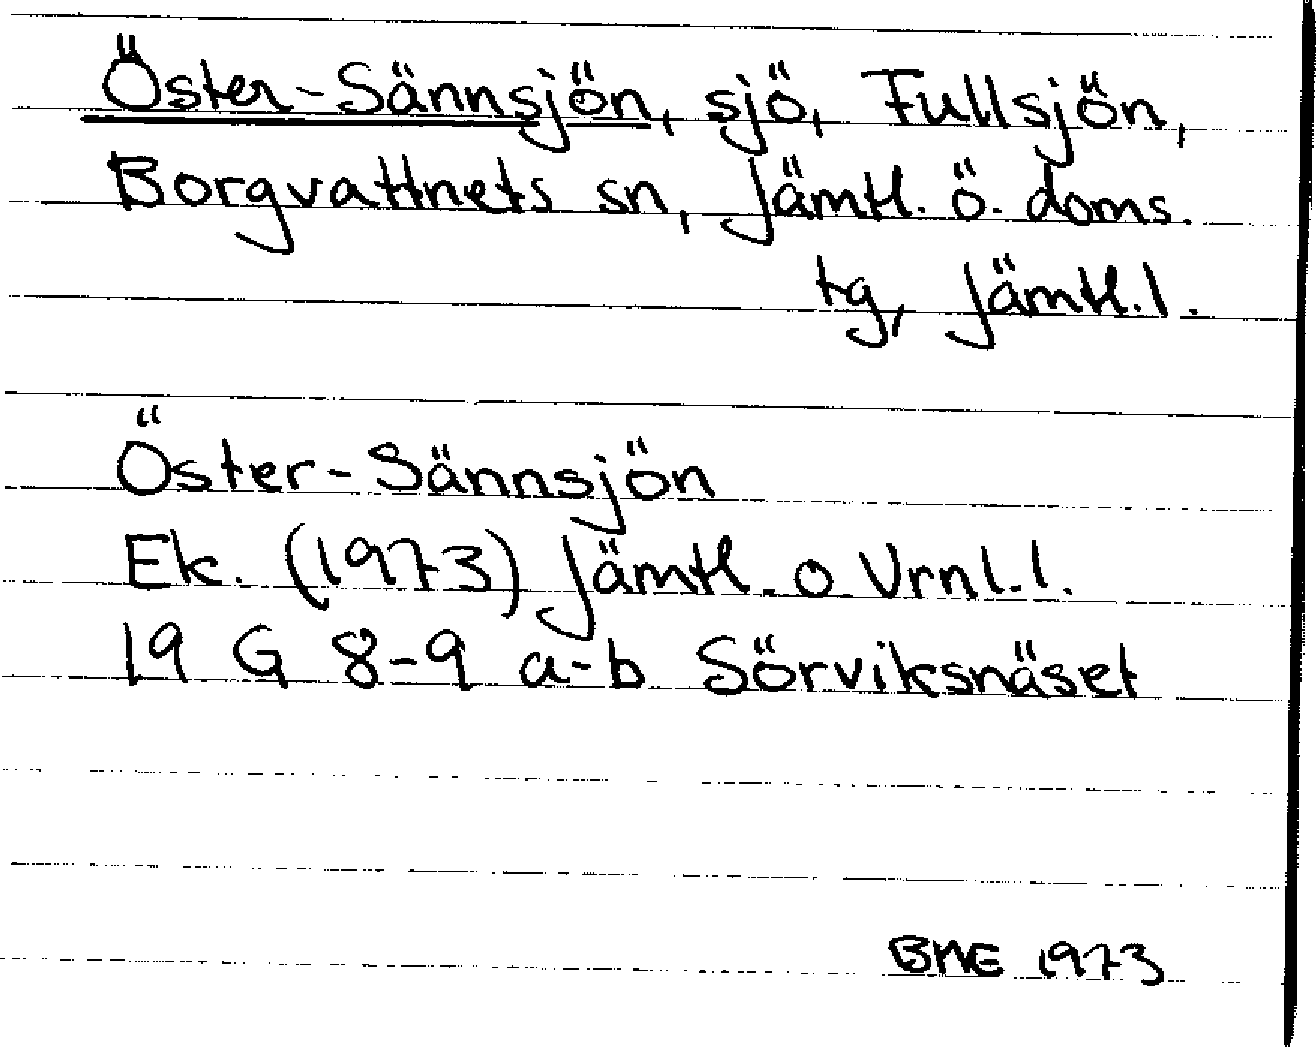 Öster-Sännsjön, sjö, Fullsjön,
Borgvattnets sn, Jämtl. ö. doms.
tg, Jämtl. l.
Öster-Sännsjön
Ek. (1973) Jämtl. o Vrnl. l.
19 G 8-9 a-b Sörviksnäset
BME 1973